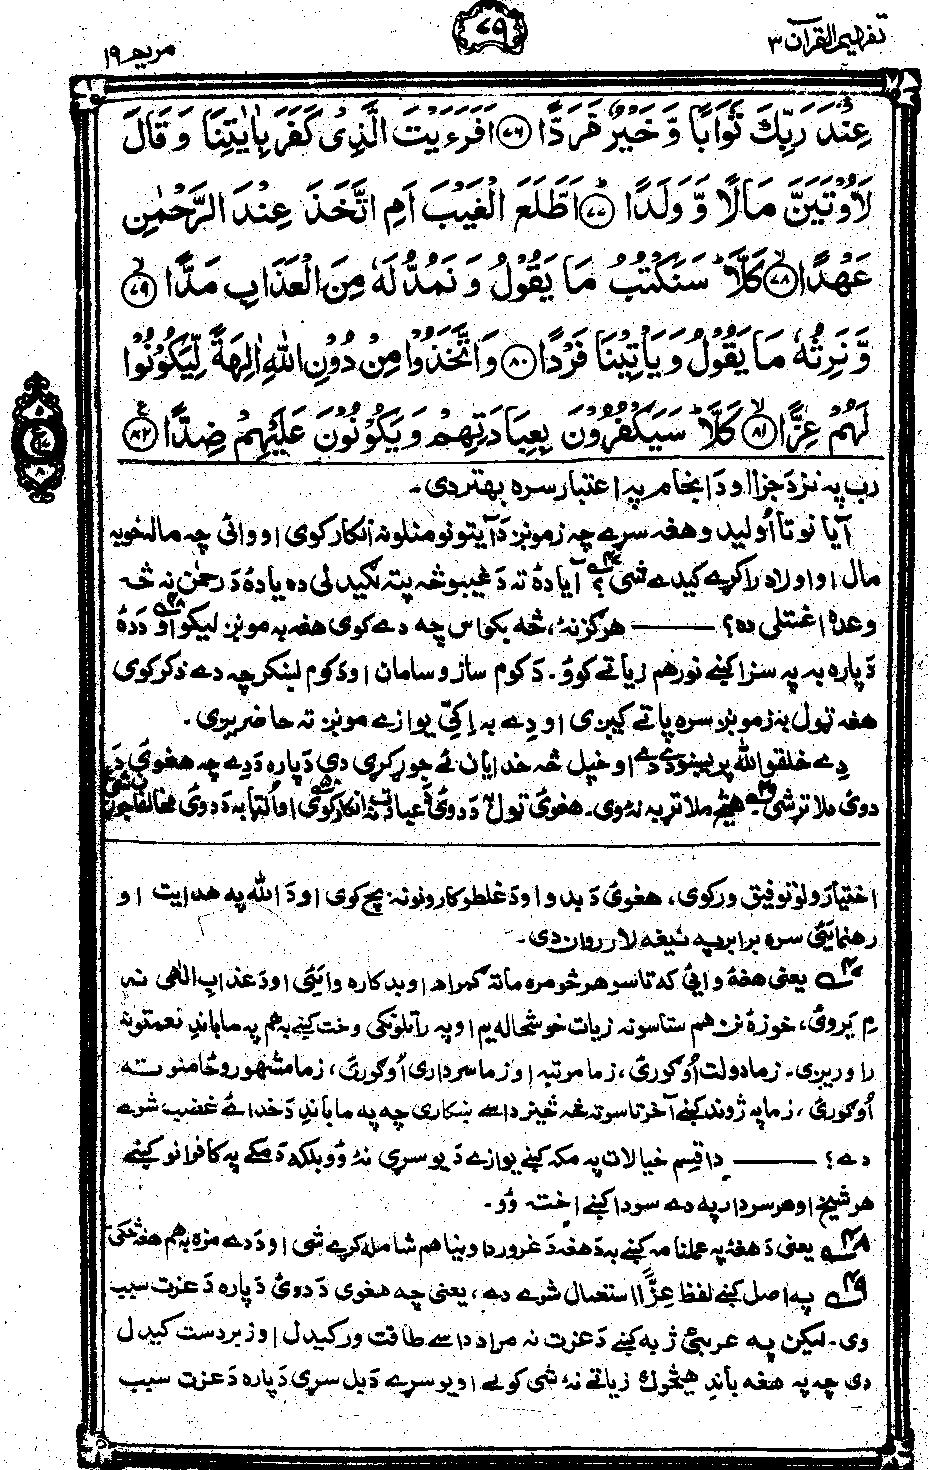 تفهیم القرآن ۳
۷۹
مریم ۱۹
عِنْدَ رَبِّكَ ثَوَابًا وَّخَيْرٌ مَّرَدًّا ﴿۷۶﴾ اَفَرَءَيْتَ الَّذِىْ كَفَرَ بِاٰيٰتِنَا وَقَالَ
لَاُوْتَيَنَّ مَالًا وَّوَلَدًا ﴿۷۷﴾ اَطَّلَعَ الْغَيْبَ اَمِ اتَّخَذَ عِنْدَ الرَّحْمٰنِ
عَهْدًا ﴿۷۸﴾ كَلَّا ؕ سَنَكْتُبُ مَا يَقُوْلُ وَنَمُدُّ لَهٗ مِنَ الْعَذَابِ مَدًّا ﴿۷۹﴾
وَّنَرِثُهٗ مَا يَقُوْلُ وَيَاْتِيْنَا فَرْدًا ﴿۸۰﴾ وَاتَّخَذُوْا مِنْ دُوْنِ اللّٰهِ اٰلِهَةً لِّيَكُوْنُوْا
لَهُمْ عِزًّا ﴿۸۱﴾ كَلَّا ؕ سَيَكْفُرُوْنَ بِعِبَادَتِهِمْ وَيَكُوْنُوْنَ عَلَيْهِمْ ضِدًّا ﴿۸۲﴾
رب په نزد جزا او د انجام په اعتبار سره بهتر دی۔
آیا نو تا اُولید و هغه سړے چه زمونږ د آیتونو منلو نه انکار کوی او وائی چه ما له خو به
مال او اولاد راکړے کیدے شی؟ آیا دهٔ ته د غیبو څه پته لګیدلی ده یا دهٔ د رحمٰن نه څه
وعده اغستلی ده؟ —— هرګز نهٔ، څه بکواس چه دے کوی هغه به مونږ لیکو او د دهٔ
دپاره به په سزا کښے نور هم زیاتے کوو۔ د کوم ساز و سامان او د کوم لښکر چه دے ذکر کوی
هغه ټول به زمونږ سره پاتے کیږی او دے به یوازے مونږ ته حاضریږی۔
دے خلقو الله پریښودے دے او خپل څه خدایان ئے جوړ کړی دی دپاره د دے چه هغوئ د
دوئ ملاتړ شی۔ هیڅ ملاتړ به نهٔ وی۔ هغوئ ټول د دوئ د عبادت نه انکار کوی او اُلټا به د دوئ مخالفان جوړ شی
اختیارولو توفیق ورکوی، هغوئ د بدو او د غلطو کارونو نه بچ کوی او د الله په هدایت او
رهنمایئ سره برابر په نیغه لار روان دی۔
یعنی هغهٔ وائی که تاسو هر څومره ما ته ګمراه او بدکاره وایئ او د عذابِ الٰهی نه
م یروئ، خو زهٔ نن هم ستاسو نه زیات خوشحاله یم او په راتلونکی وخت کښے به هم په ما باندِ نعمتونه
را وریږی۔ زما دولت اُوګورئ، زما مرتبه او زما سرداری اُوګورئ، زما مشهور و ځامنو ته
اُوګورئ، زما په ژوند کښے آخر تاسو ته څه څیز داسے ښکاری چه په ما باندِ د خدائے غضب شوے
دے؟ —— دا قِسم خیالات په مکه کښے یوازے د یو سړی نهٔ وُو بلکه د مکے په کافرانو کښے
هر شیخ او هر سردار په دے سودا کښے اخته وُو۔
یعنی د هغهٔ په عملنامه کښے به د هغه د غرور دا وینا هم شامله کړے شی او د دے مزه به هم هغه څکی
په اصل کښے لفظ عِزًّا استعمال شوے دے، یعنی چه هغوی د دوئ دپاره د عزت سبب
وی۔ لیکن په عربئ ژبه کښے د عزت نه مراد داسے طاقت ور کیدل او زبردست کیدل
دی چه په هغه باندِ هیڅوک زیاتے نهٔ شی کولے او یو سړے د بل سړی دپاره د عزت سبب